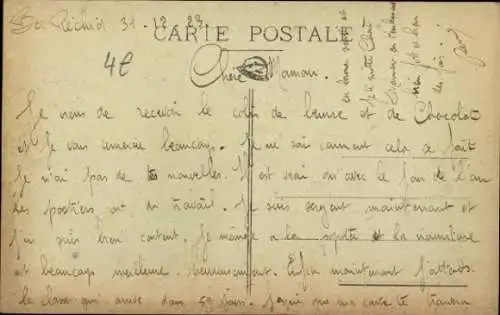 Ber Rechid 31-12-23
CARTE POSTALE
4€
Chère Maman.
Je viens de recevoir le colis de beurre et de Chocolat
et Je vous remercie beaucoup. Je ne sais comment cela se fait
Je n'ai pas de nouvelles. Il est vrai qu'avec le Jour de l'an
les postiers ont du travail. Je suis sergent maintenant et
J'en suis bien content. Je mange a la popote et la nourriture
est beaucoup meilleure heureusement. Enfin maintenant J'attends
la classe qui arrive dans 59 Jours. J' que ma carte te trouvera
en bonne santé et